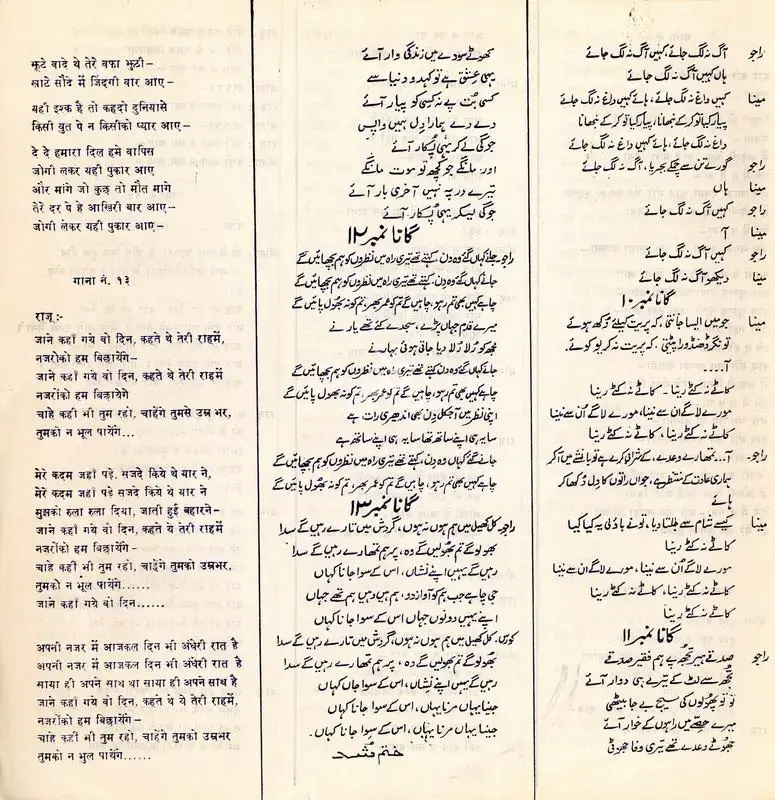 झूटे वादे थे तेरे वफा झुटी–
खाटे सौदे में जिंदगी वार आए–
यही इश्क है तो कहदो दुनियासे
किसी बुत पे न किसीको प्यार आए–
दे दे हमारा दिल हमे वापिस
जोगी लकर यही पुकार आए
और मांगे जो कुछ तो मौत मागे
तेरे दर पे हे आखिरी बार आए–
जोगी लेकर यही पुकार आए–
गाना नं. १३
राजू :-
जाने कहाँ गये वो दिन, कहते थे तेरी राहमें,
नजरोको हम बिछायेंगे–
जाने कहाँ गये वो दिन, कहते थे तेरी राहमें
नजरोंको हम बिछायेगे
चाहे कहीं भी तुम रहो, चाहेंगे तुमसे उम्र भर,
तुमको न भूल पायेंगे...
मेरे कदम जहाँ पड़े, सजदे किये थे यार ने,
मेरे कदम जहाँ पडे सजदे किये थे यार ने
मुझको रुला रुला दिया, जाती हुई बहारने–
जाने कहाँ गये वो दिन, कहते थे तेरी राहमें
नजरोंको हम बिछायेंगे–
चाहे कहीं भी तुम रहो, चाहेंगे तुमको उम्रभर,
तुमको न भुल पायेंगे......
जाने कहाँ गये वो दिन......
अपनी नजर में आजकल दिन भी अंधेरी रात है
अपनी नजर में आजकल दिन भी अंधेरी रात है
साया ही अपने साथ था साया ही अपने साथ है
जाने कहाँ गये वो दिन, कहते थे ये तेरी राहमें,
नजरोंको हम बिछायेंगे–
चाहे कहीं भी तुम रहो, चाहेंगे तुमको उम्रभर
तुमको न भुल पायेंगे......
کھوٹے سودے میں زندگی وار آئے
یہی عشق ہے تو کہدو دنیا سے
کسی بُت پے نہ کسی کو پیار آئے
دے دے ہمارا دل ہمیں واپس
جوگی لے کر یہی پُکار آئے
اور مانگے جو کچھ تو موت مانگے
تیرے در پہ نہیں آخری بار آئے
جوگی لیکر یہی پُکار آئے
گانا نمبر ۱۲
راجو جانے کہاں گئے وہ دن، کہتے تھے تیری راہ میں نظروں کو ہم بچھائیں گے
جانے کہاں گئے وہ دن، کہتے تھے تیری راہ میں نظروں کو ہم بچھائیں گے
چاہے کہیں بھی تم رہو، چاہیں گے تم کو عمر بھر، تم کو نہ بھول پائیں گے
میرے قدم جہاں پڑے، سجدے کئے تھے یار نے
مجھ کو رُلا رُلا دیا جاتی ہوئی بہار نے
جانے کہاں گئے وہ دن، کہتے تھے تیری راہ میں نظروں کو ہم بچھائیں گے
چاہے کہیں بھی تم رہو، چاہیں گے تم کو عمر بھر تم کو نہ بھول پائیں گے
اپنی نظر میں آجکل دن بھی اندھیری رات ہے
سایہ ہی اپنے ساتھ تھا سایہ ہی اپنے ساتھ ہے
جانے گئے کہاں وہ دن، کہتے تھے تیری راہ میں نظروں کو ہم بچھائیں گے
چاہے کہیں بھی تم رہو، چاہیں گے تم کو عمر بھر، تم کو نہ بھول پائیں گے
گانا نمبر ۱۳
راجو کل کھیل میں ہم ہوں نہ ہوں، گردش میں تارے رہیں گے سدا
بھولو گے تم بھولیں گے وہ، پر ہم تمھارے رہیں گے سدا
رہیں گے یہیں اپنے نشاں، اس کے سوا جانا کہاں
جی چاہے جب ہم کو آواز دو، ہم ہیں وہیں ہم تھے جہاں
اپنے یہیں دونوں جہاں اس کے سوا جانا کہاں
کورس۔ کل کھیل میں ہم ہوں نہ ہوں، گردش میں تارے رہیں گے سدا
بھولو گے تم بھولیں گے وہ، پر ہم تمھارے رہیں گے سدا
رہیں گے یہیں اپنے نشاں، اس کے سوا جاں کہاں
جینا یہاں مرنا یہاں، اس کے سوا جانا کہاں
جینا یہاں مرنا یہاں، اس کے سوا جانا کہاں.
ختم شد
راجو آگ نہ لگ جائے کہیں آگ نہ لگ جائے
ہاں کہیں آگ نہ لگ جائے
مینا کہیں داغ نہ لگ جائے، ہائے کہیں داغ نہ لگ جائے
پیار کیا تو کر کے نبھانا، پیار کیا تو کر کے نبھانا
داغ نہ لگ جائے، ہائے کہیں داغ نہ لگ جائے
راجو گورے تن سے چمکے بجریا، آگ نہ لگ جائے
مینا ہاں
راجو کہیں آگ نہ لگ جائے
مینا آ
راجو کہیں آگ نہ لگ جائے
مینا دیکھو آگ نہ لگ جائے
گانا نمبر ۱۰
مینا جو میں ایسا جانتی، کہ پریت کیئے دُکھ ہوئے
تو نگر ڈھنڈورا پیٹتی، کہ پریت نہ کریو کوئے
آ......
کاٹے نہ کٹے رینا ۔ کاٹے نہ کٹے رینا
مورے لاگے اُن سے نینا، مورے لاگے اُن سے نینا
کاٹے نہ کٹے رینا، کاٹے نہ کٹے رینا
راجو۔ آ... تمھارے وعدے، کے
ہماری عادت کے منتظر ہے، جواں راتوں کا دل دُکھا کر
ہائے
مینا کیسے شام سے بلتا دیا، تو نے باؤلی یہ کیا کیا
کاٹے نہ کٹے رینا
مورے لاگے اُن سے نینا، مورے لاگے اُن سے نینا
کاٹے نہ کٹے رینا، کاٹے نہ کٹے رینا
کاٹے نہ کٹے رینا
گانا نمبر ۱۱
راجو صدقے ہیر تجھ پے ہم فقیر صدقے
تجھ سے لُٹ کے تیرے ہی دوار آئے
تو تو پھولوں کی سیج پے جا بیٹھی
میرے حصّے میں راہوں کے خوار آئے
جھوٹے وعدے تھے تیری وفا جھوٹی